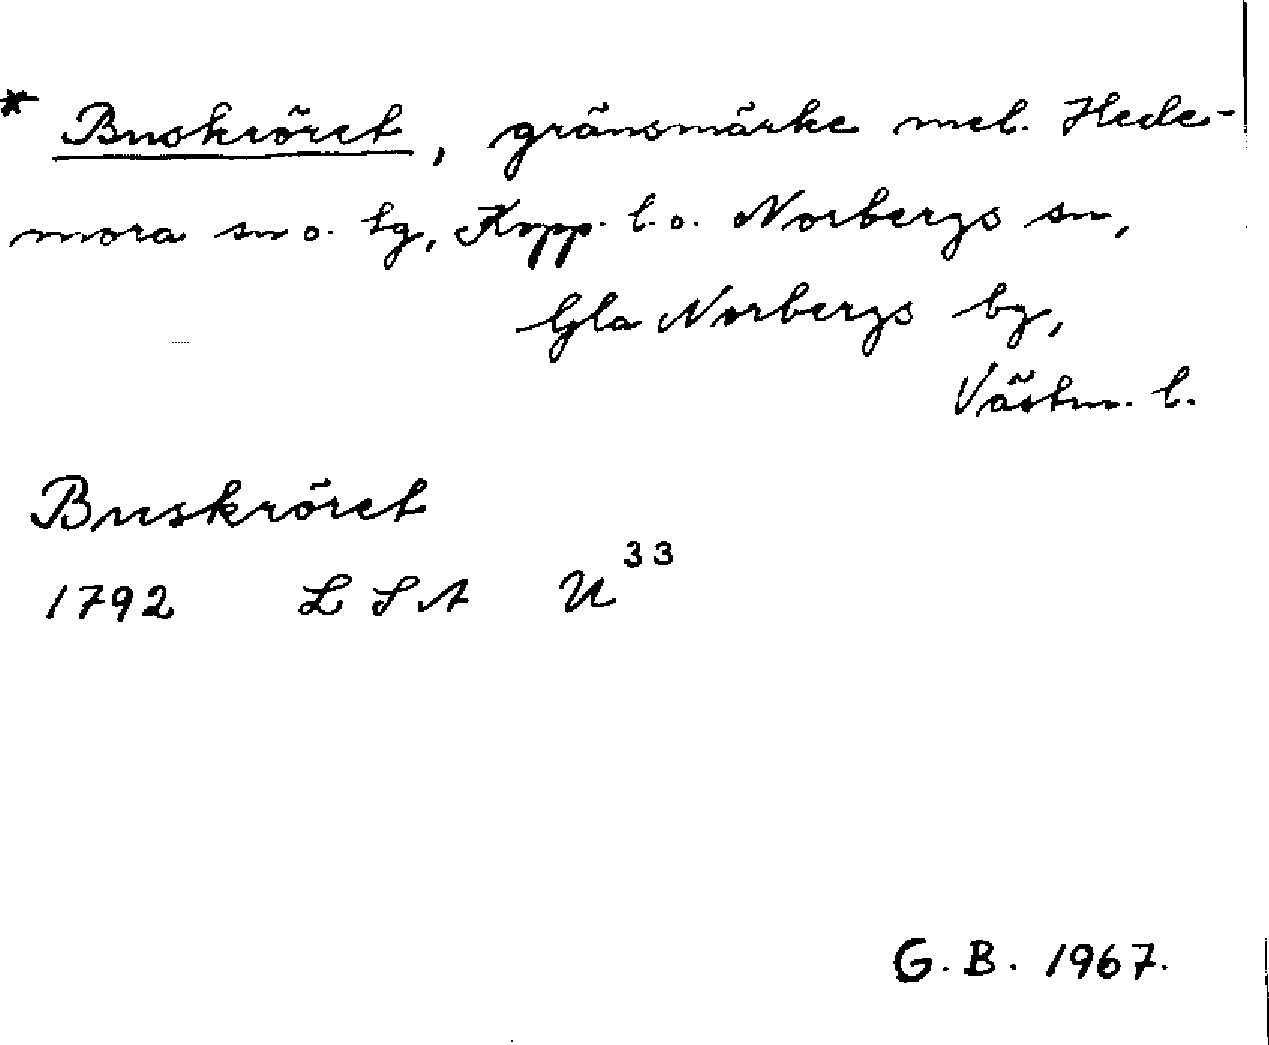 * Buskröret, gränsmärke mel. Hede-
mora sn o. tg, Kopp. l. o. Norbergs sn,
Gla Norbergs bg,
Västm. l.
Buskröret
1792 LSA U³³
G.B. 1967.